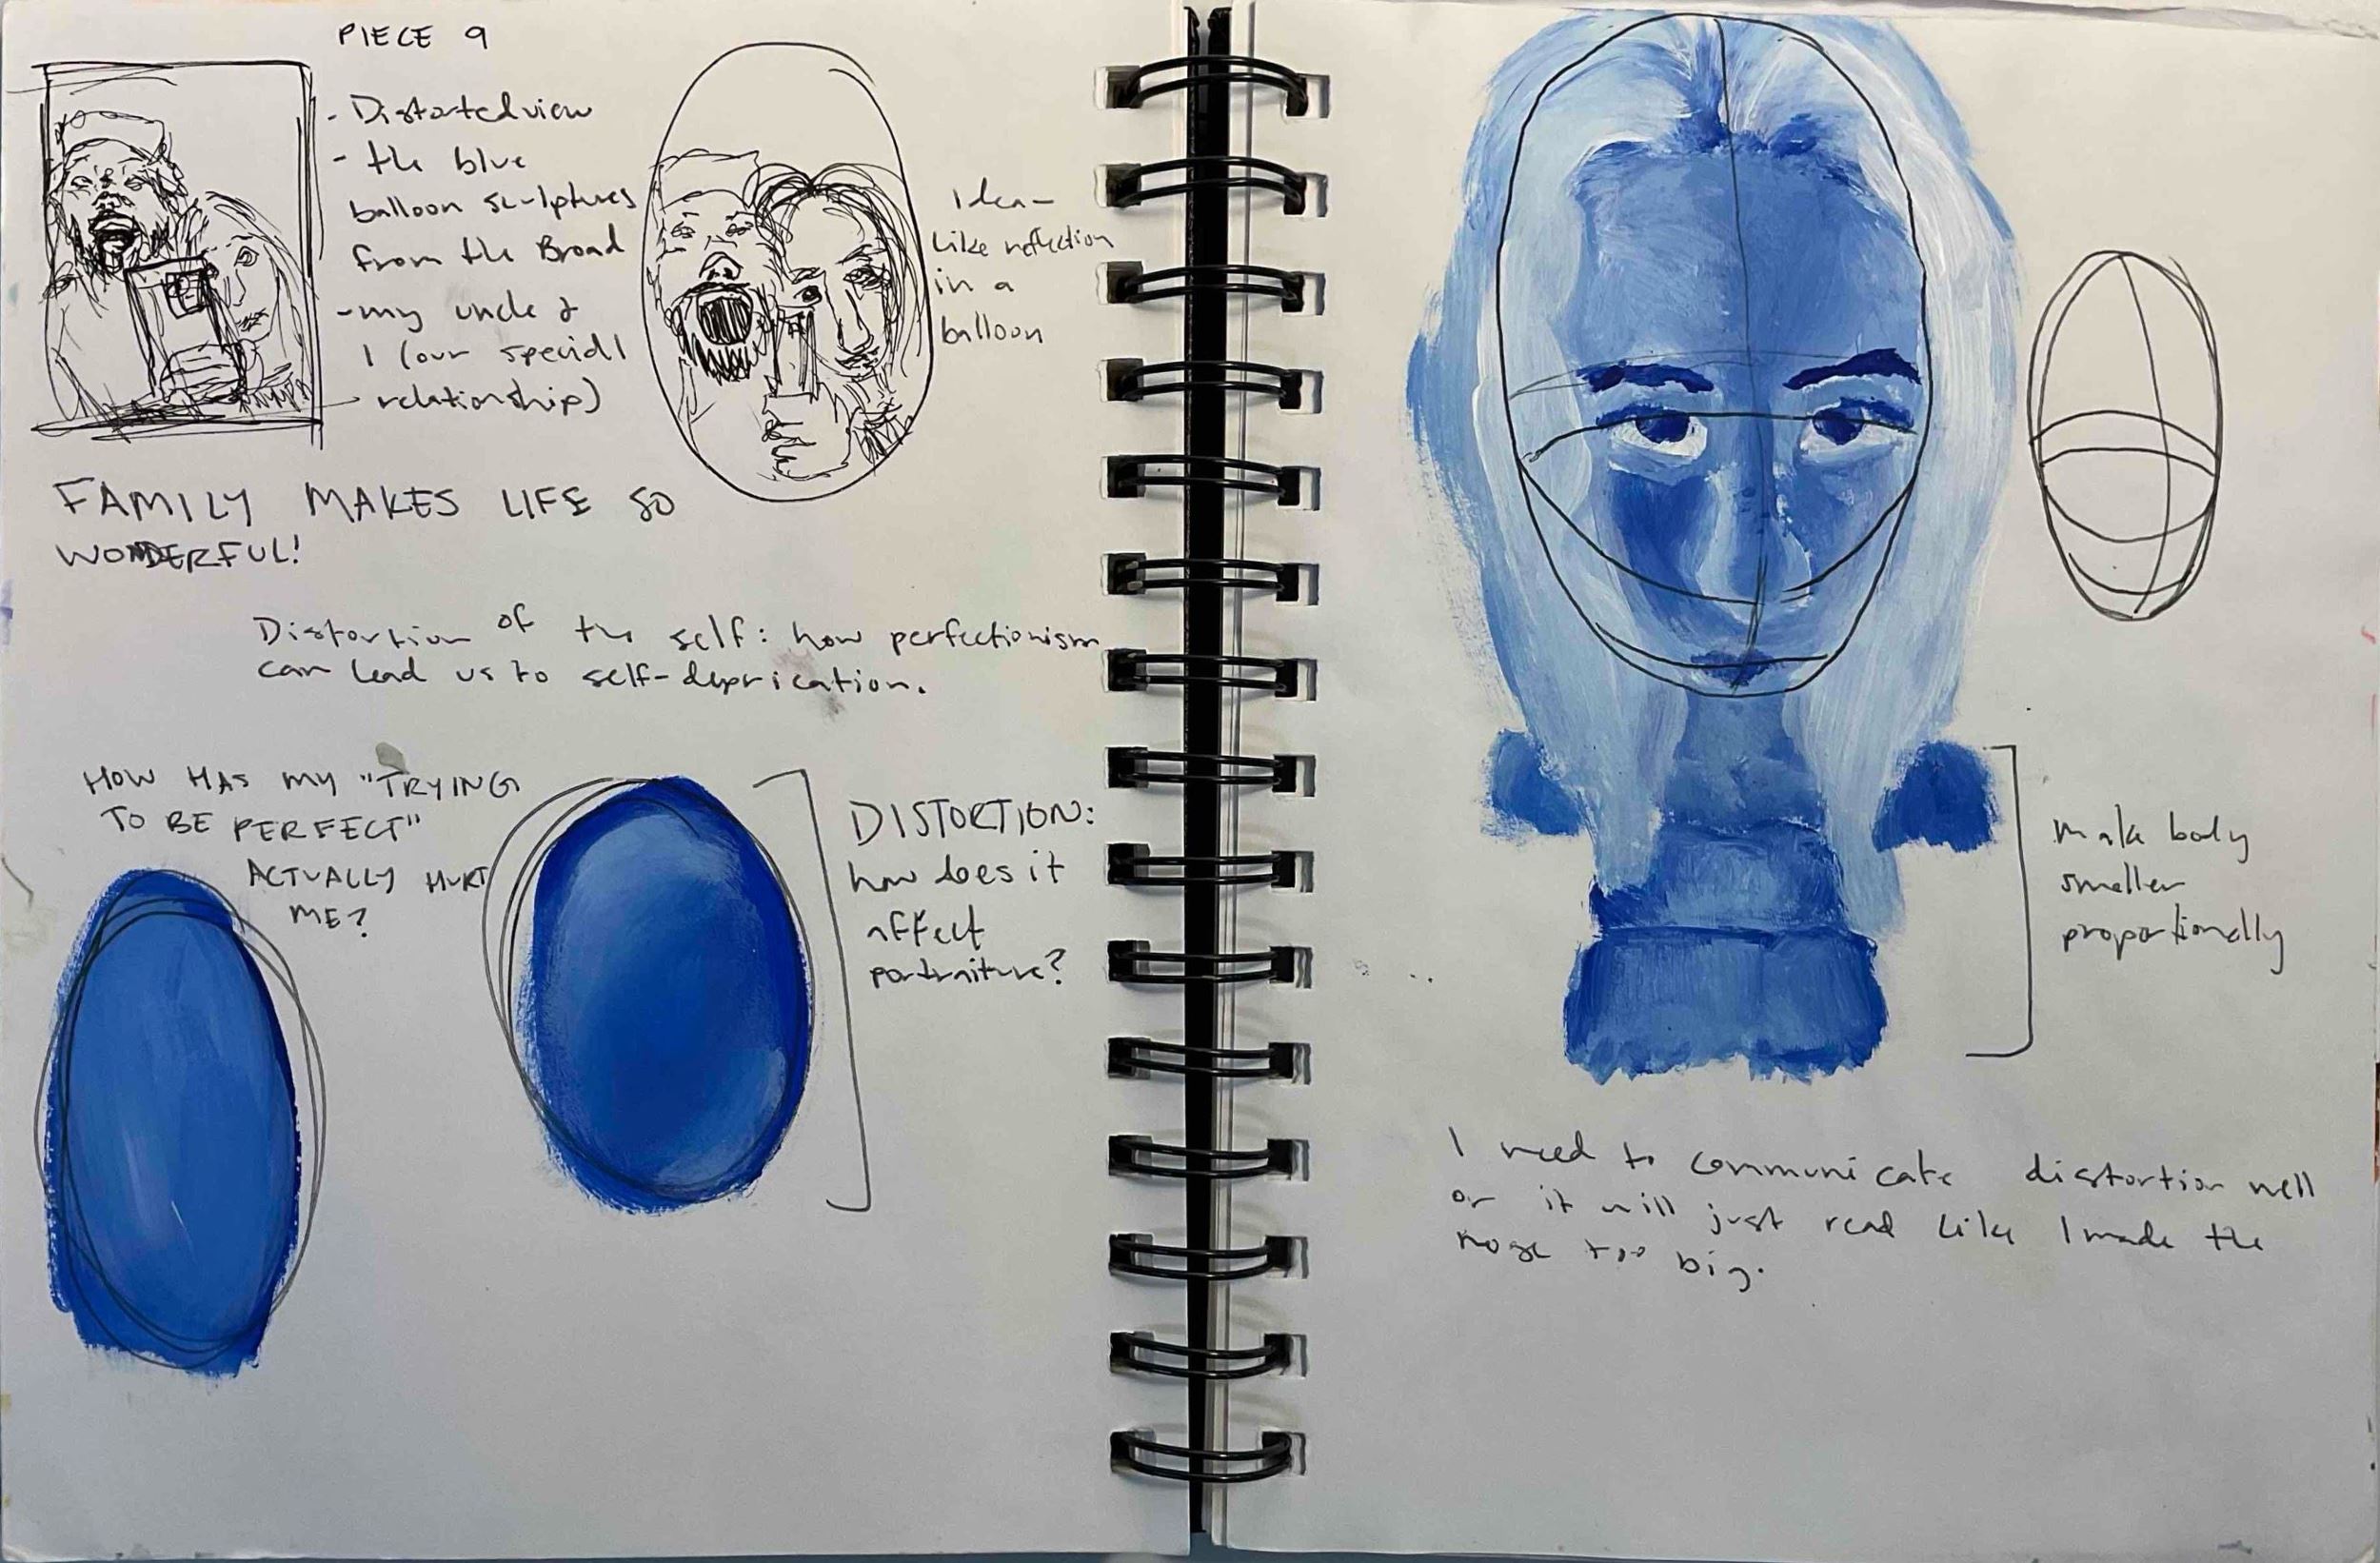 PIECE 9
- Distorted view
- the blue
balloon sculptures
from the Broad
- my uncle &
I (our special
relationship)
Idea-
Like reflection
in a
balloon
FAMILY MAKES LIFE SO
WONDERFUL!
Distortion of the self: how perfectionism
can lead us to self-deprication.
HOW HAS MY "TRYING
TO BE PERFECT"
ACTUALLY HURT
ME?
DISTORTION:
how does it
affect
portraiture?
Make body
smaller
proportionally
I need to communicate distortion well
or it will just read like I made the
nose too big.